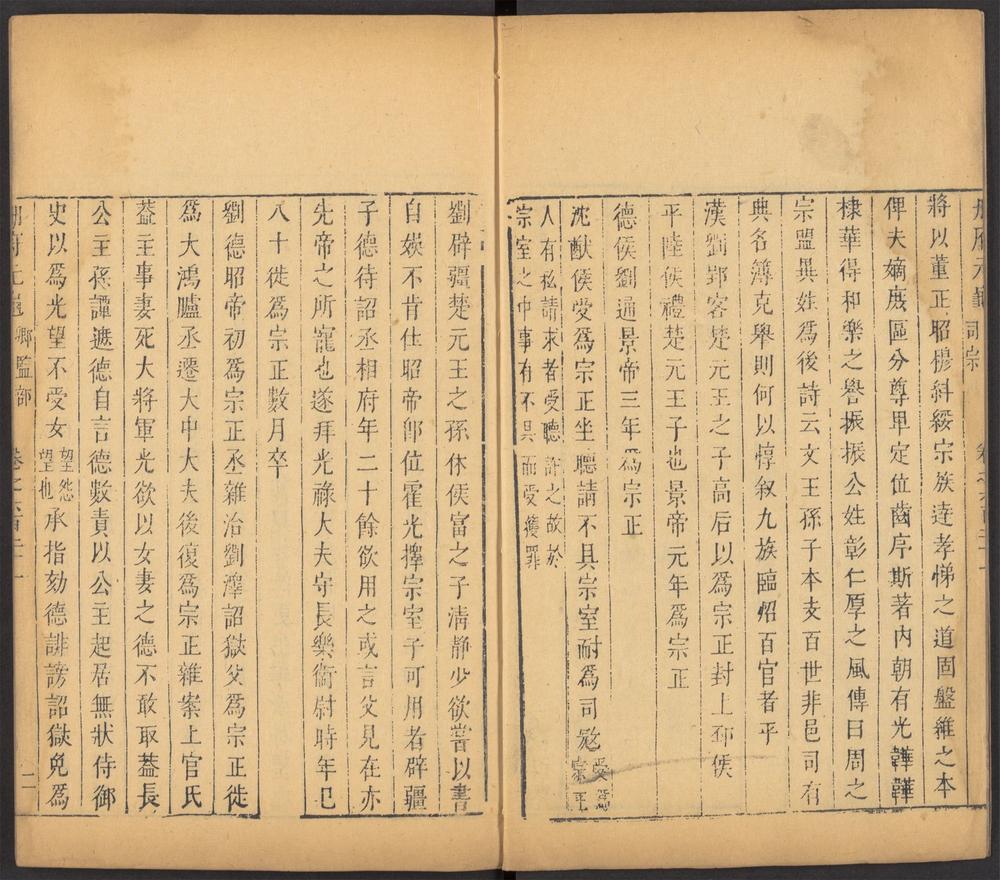 司宗
將以董正昭穆糾綏宗族達孝悌之道固盤維之本
俾夫嫡庶區分尊畢定位齒序斯著内朝有光韡韡
棣華得和樂之譽振振公姓彰仁厚之風傳曰周之
宗盟異姓為後詩云文王孫子本支百世非邑司有
典名簿克舉則何以惇叙九族臨炤百官者乎
漢劉郢客楚元王之子高后以為宗正封上邳侯
平陸侯禮楚元王子也景帝元年為宗正
德侯劉通景帝三年為宗正
沈猷侯受為宗正坐聽請不具宗室耐為司寇受為宗正
人有私請求者受聽許之故於
宗室之中事有不具而受獲罪
劉辟疆楚元王之孫休侯富之子清静少欲嘗以書
自娛不肯仕昭帝即位霍光擇宗室子可用者辟疆
子德待詔丞相府年二十餘欲用之或言父見在亦
先帝之所寵也遂拜光禄大夫守長樂衛尉時年已
八十徙為宗正數月卒
劉德昭帝初為宗正丞雜治劉澤詔獄父為宗正徙
為大鴻臚丞遷大中大夫後復為宗正雜案上官氏
葢主事妻死大將軍光欲以女妻之德不敢取葢長
公主孫譚遮德自言德數責以公主起居無狀侍御
史以為光望不受女望怨望也承指劾德誹謗詔獄免為
册府元龜卿監部 卷之六百二十一 二